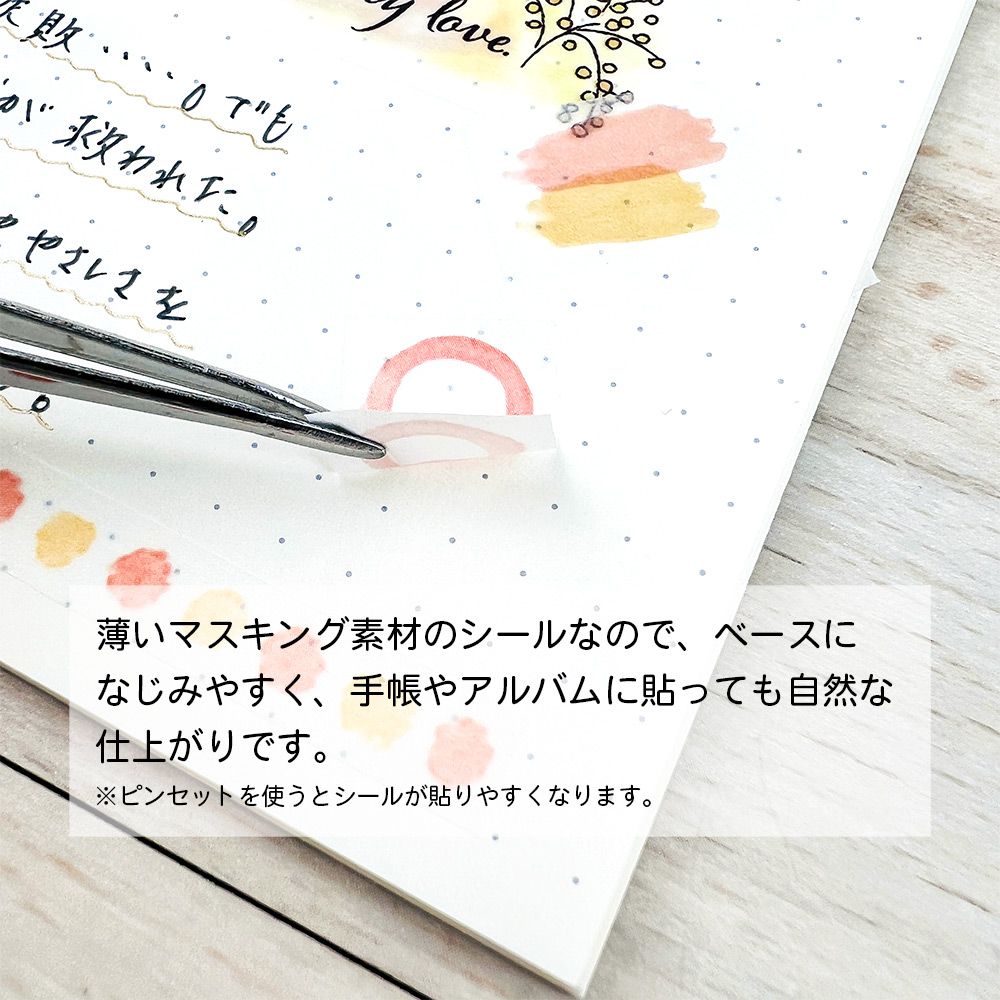 love.
失敗・・・・。でも
が救われた。
やさしさを
薄いマスキング素材のシールなので、ベースに
なじみやすく、手帳やアルバムに貼っても自然な
仕上がりです。
※ピンセットを使うとシールが貼りやすくなります。